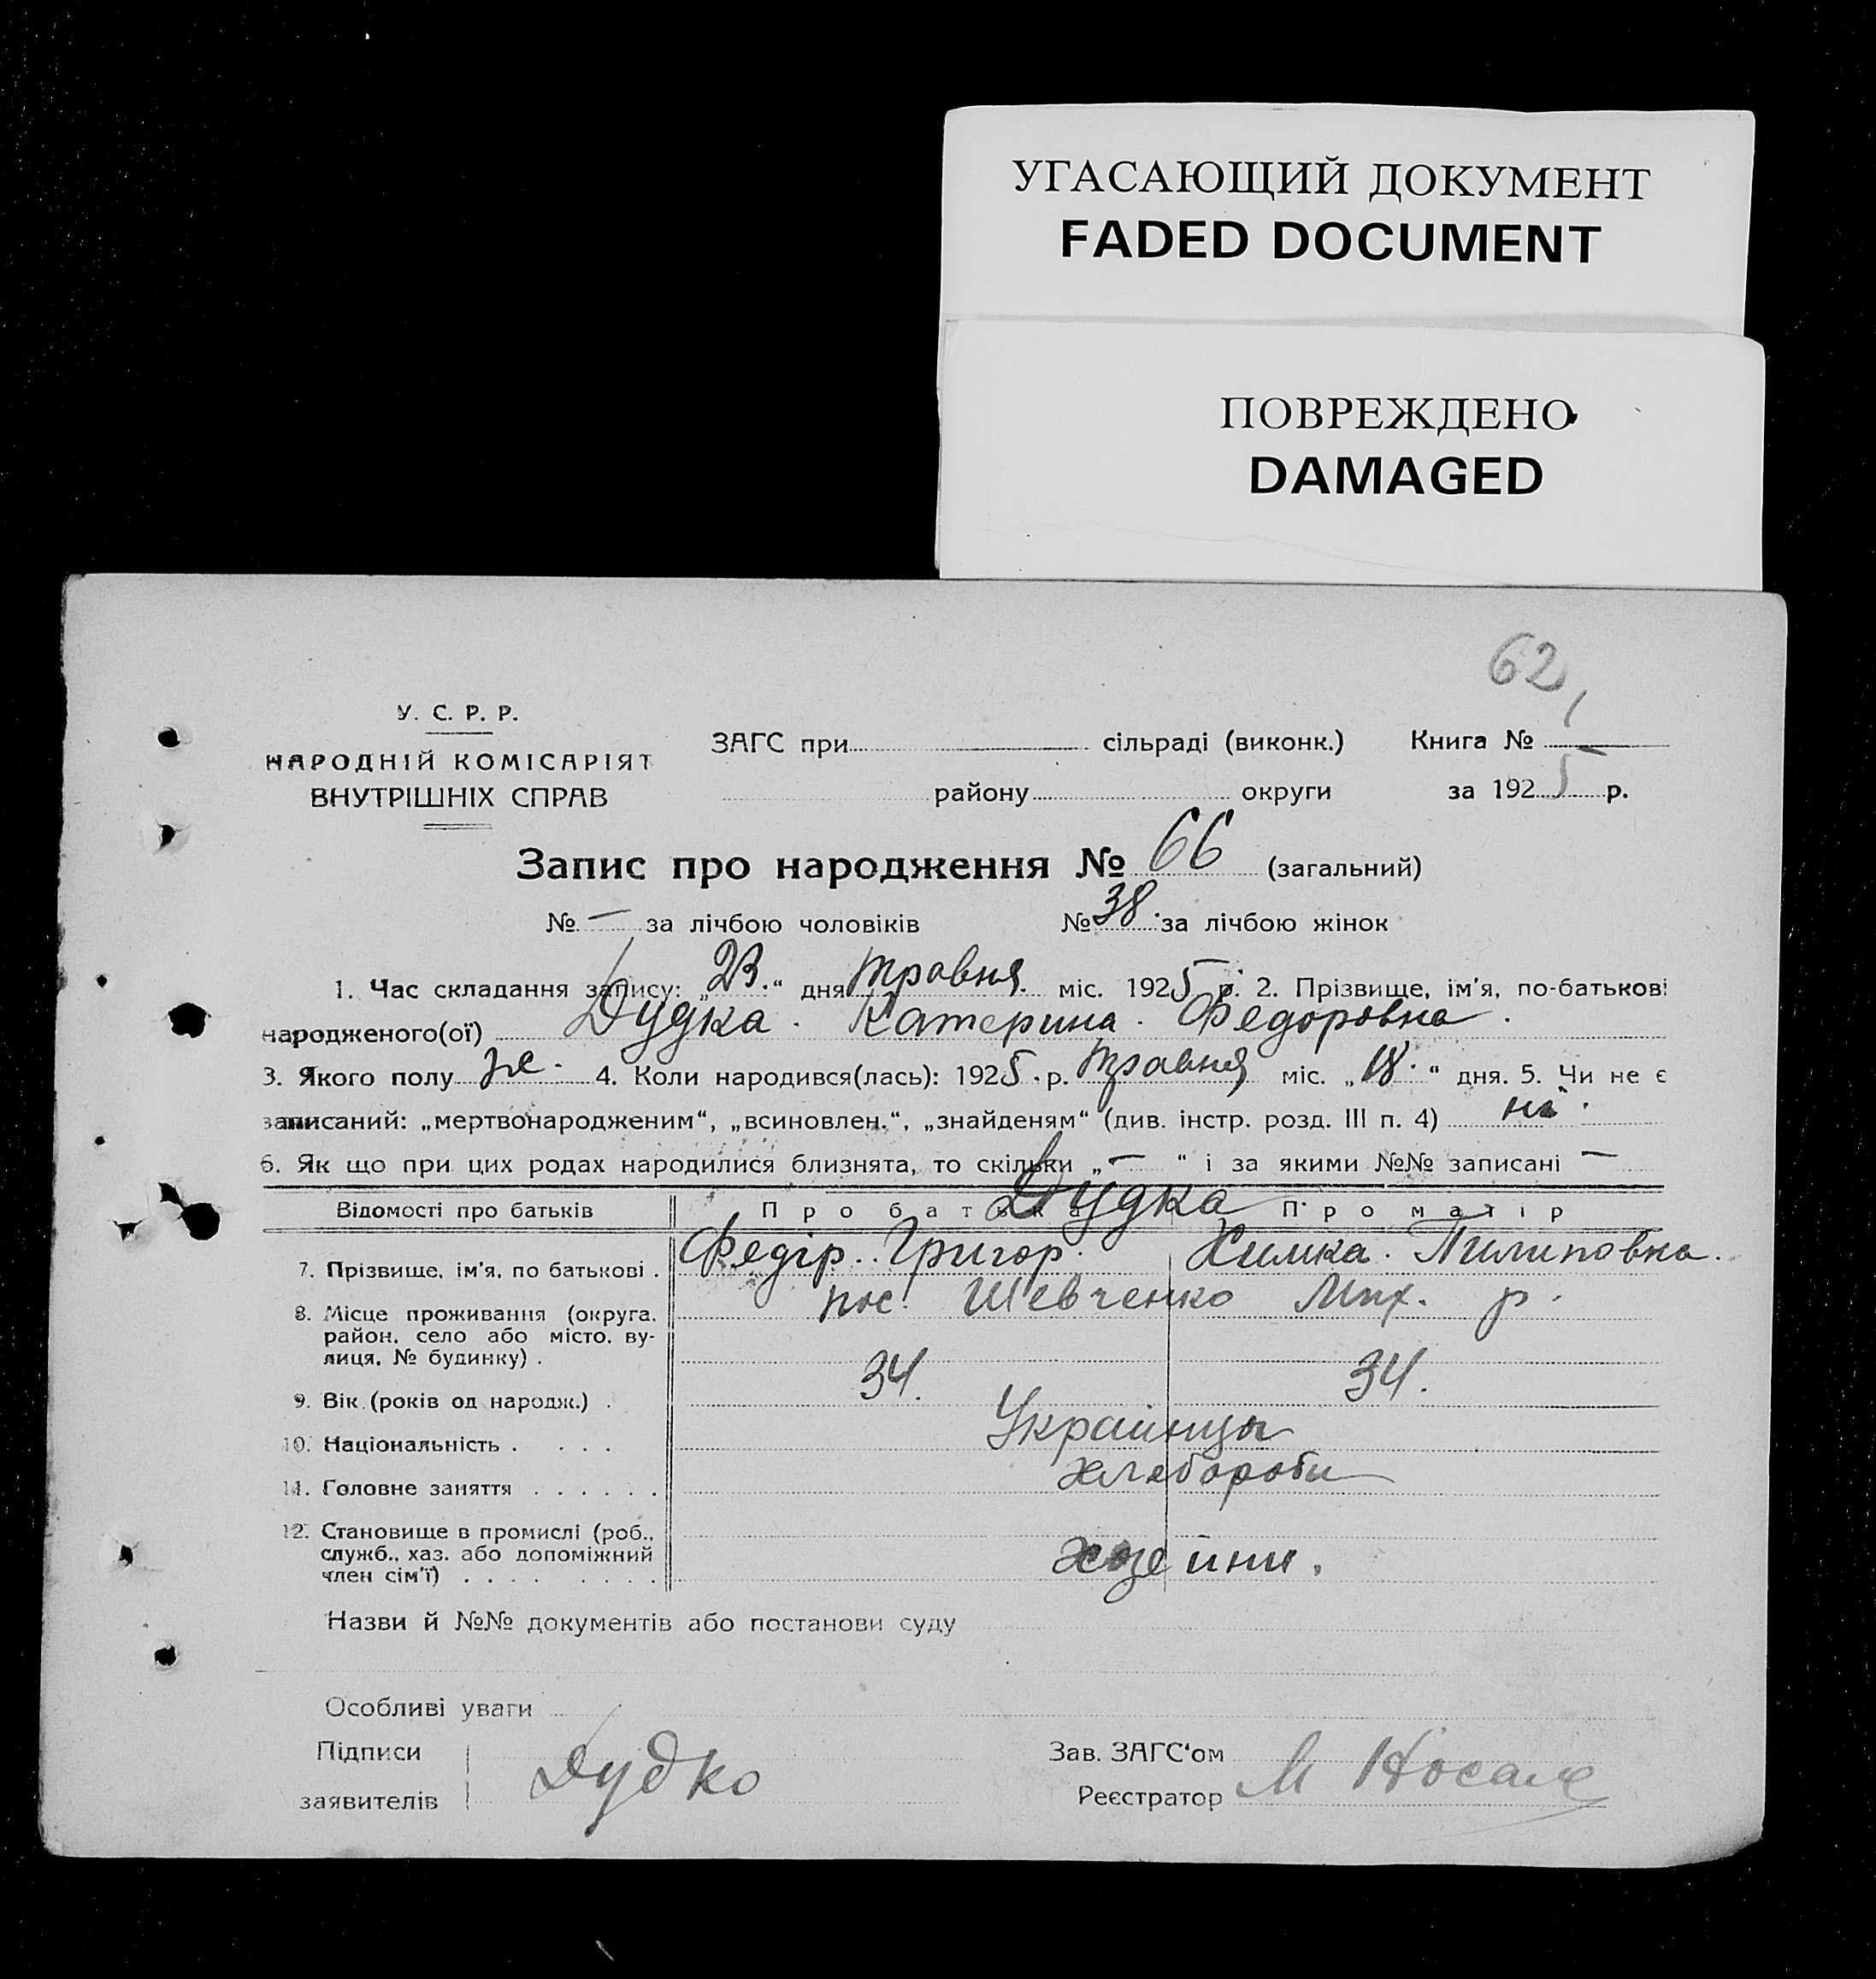 УГАСАЮЩИЙ ДОКУМЕНТ
FADED DOCUMENT
ПОВРЕЖДЕНО
DAMAGED
62
У. С. Р. Р.
НАРОДНІЙ КОМІСАРІЯТ
ВНУТРІШНІХ СПРАВ
ЗАГС при сільраді (виконк.) Книга №
району округи за 1925 р.
Запис про народження № 66 (загальний)
№ — за лічбою чоловіків № 38. за лічбою жінок
1. Час складання запису: „23.“ дня травня міс. 1925 р. 2. Прізвище, ім'я, по-батькові
народженого(ої) Дудка. Катерина. Федоровна.
3. Якого полу же. 4. Коли народився(лась): 1925. р. травня міс. „18.“ дня. 5. Чи не є
записаний: „мертвонародженим“, „всиновлен.“, „знайденям“ (див. інстр. розд. III п. 4) ні.
6. Як що при цих родах народилися близнята, то скільки „—“ і за якими №№ записані —
Відомості про батьків Про батька Дудка Про матір
7. Прізвище, ім'я, по батькові. Федір. Григор. Химка. Пилиповна.
8. Місце проживання (округа, пос. Шевченко Мих. р.
район, село або місто, ву-
лиця, № будинку).
9. Вік (років од народж.) . 34. 34.
10. Національність . . . . Украинцы
11. Головне заняття . . . . . . хлебороби
12. Становище в промислі (роб.,
служб., хаз. або допоміжний
член сім'ї) . . . . . . . . хозейни.
Назви й №№ документів або постанови суду
Особливі уваги
Підписи Зав. ЗАГС'ом
Дудко М Носаль
заявителів Реєстратор